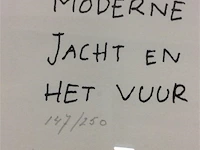 MODERNE
JACHT EN
HET VUUR
147/250